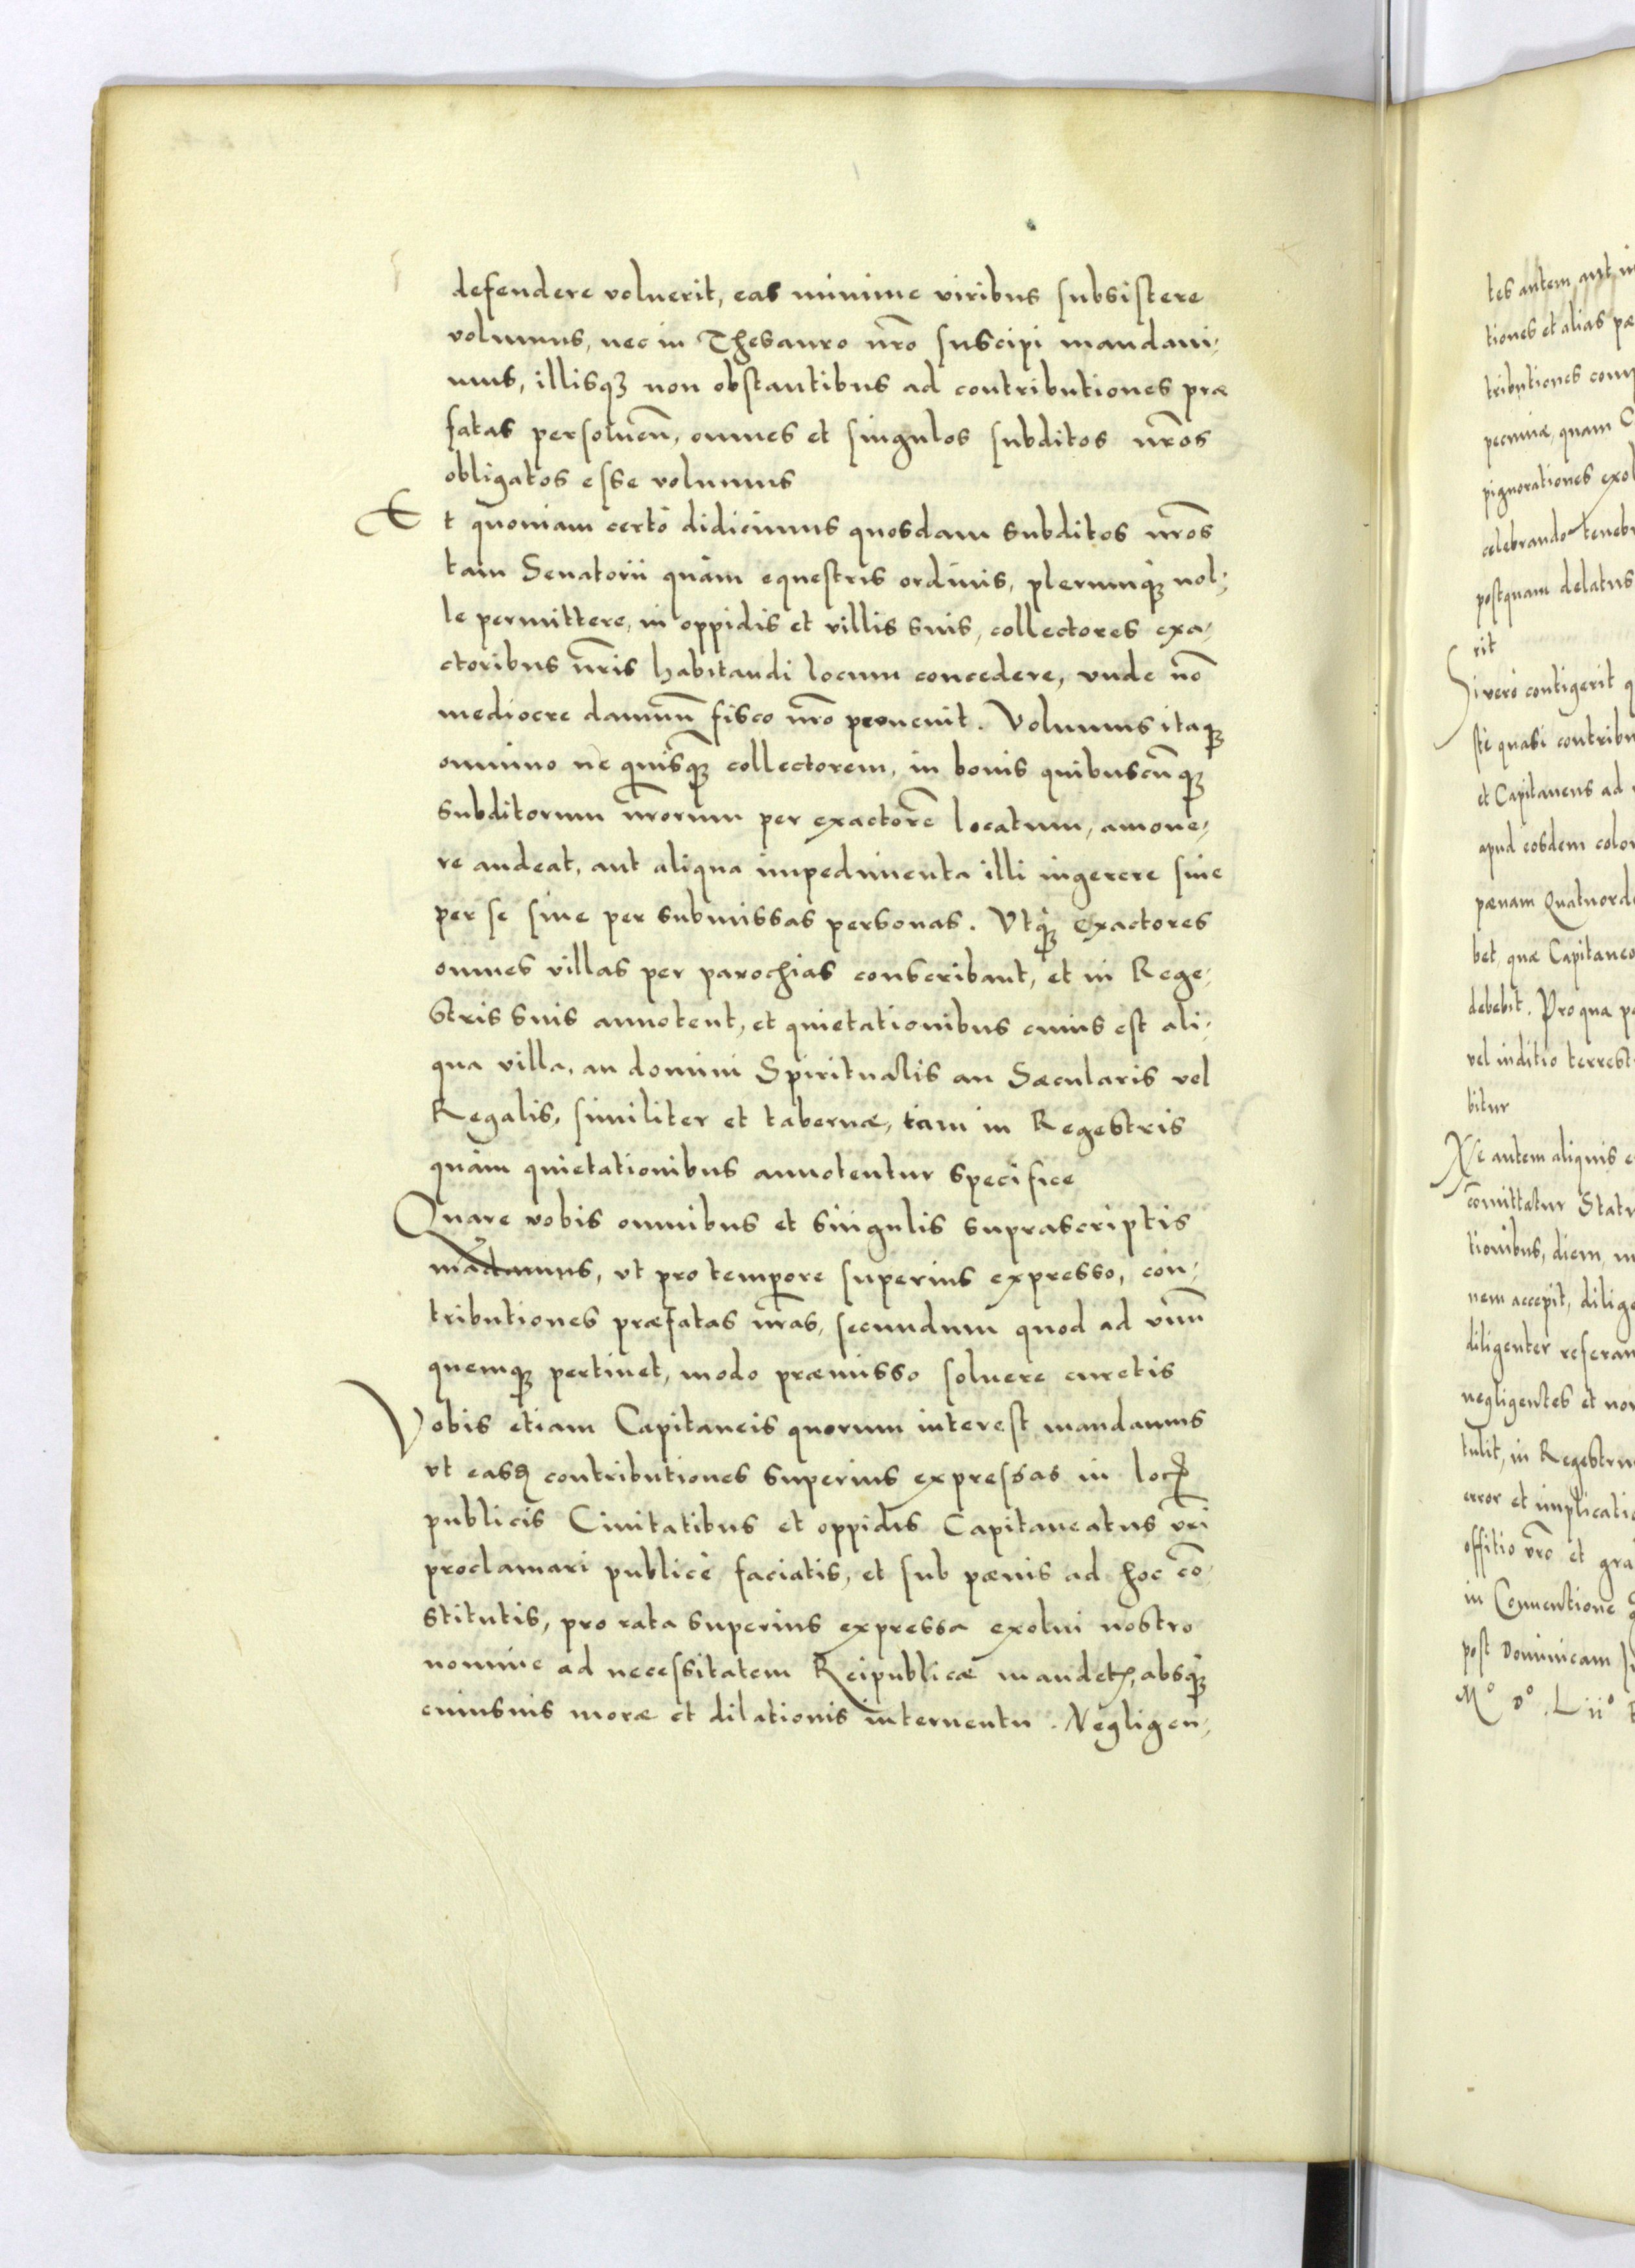 defendere voluerit, eas minime viribus subsistere
volumus, nec in Thesauro nr̃o suscipi mandaui,
mus, illisqꝫ non obstantibus ad contributiones præ
fatas persoluen̄, omnes et singulos subditos nr̃os
obligatos esse volumus
Et quoniam certò didicimus quosdam subditos nr̃os
tam Senatorii quàm equestris ordinis, plerunqꝫ nol,
le permittere, in oppidis et villis suis, collectores exa,
ctoribus nr̃is habitandi locum concedere, vnde nō
mediocre damnū fisco nr̃o prouenit. Volumus itaqꝫ
omnino nè quisqꝫ collectorem, in bonis quibuscūqꝫ
subditorum nr̃orum per exactorē locatum, amoue,
re audeat, aut aliqua impedimenta illi ingerere siue
per se siue per submissas personas. Vtqꝫ exactores
omnes villas per parochias conscribant, et in Rege,
stris suis annotent, et quietationibus cuius est ali,
qua villa, an domini Spiritualis an Sæcularis vel
Regalis, similiter et tabernæ, tam in Regestris
quàm quietationibus annotentur specifice
Quare vobis omnibus et singulis suprascriptis
mādamus, vt pro tempore superius expresso, con,
tributiones præfatas nr̃as, secundum quod ad vnū
quemqꝫ pertinet, modo præmisso soluere curetis
Vobis etiam Capitaneis quorum interest mandamus
vt easd contributiones superius expressas in locis
publicis Ciuitatibus et oppidis Capitaneatus vr̃i
proclamari publicè faciatis, et sub pænis ad hoc cō,
stitutis, pro rata superius expressa exolui nostro
nomine ad necessitatem Reipublicæ mandetꝭ, absqꝫ
cuiusuis moræ et dilationis interuentu. Negligen,
tes autem aut
tiones et alias
tributiones
pecuniæ, quam
pignorationes
celebrando
postquam delatus
rit
Si verò contigerit
stè quasi
et Capitaneus ad
apud eosdem
pænam
bet, quæ
debebit. Pro qua
vel inditio
bitur
Nè autem aliquis
cōmittatur
tionibus, diem,
nem accepit,
diligenter
negligentes et
tulit, in
error et
offitio vr̃o et
in Conuentione
post Dominicam
Mº Dº. Liiº